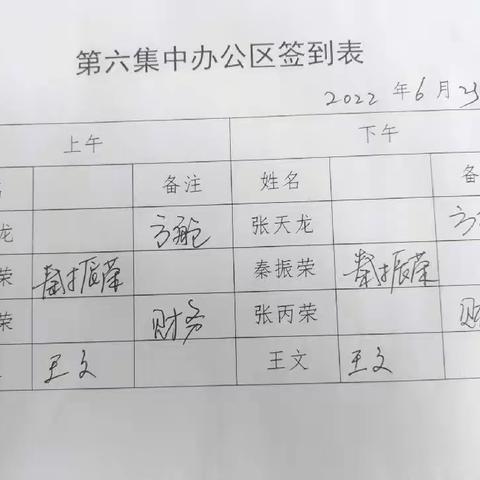 第六集中办公区签到表
2022 年 6 月 23
上午 下午
名 备注 姓名 备
龙 方舱 张天龙 方
荣 秦振荣 秦振荣 秦振荣
荣 财务 张丙荣 财
王文 王文 王文